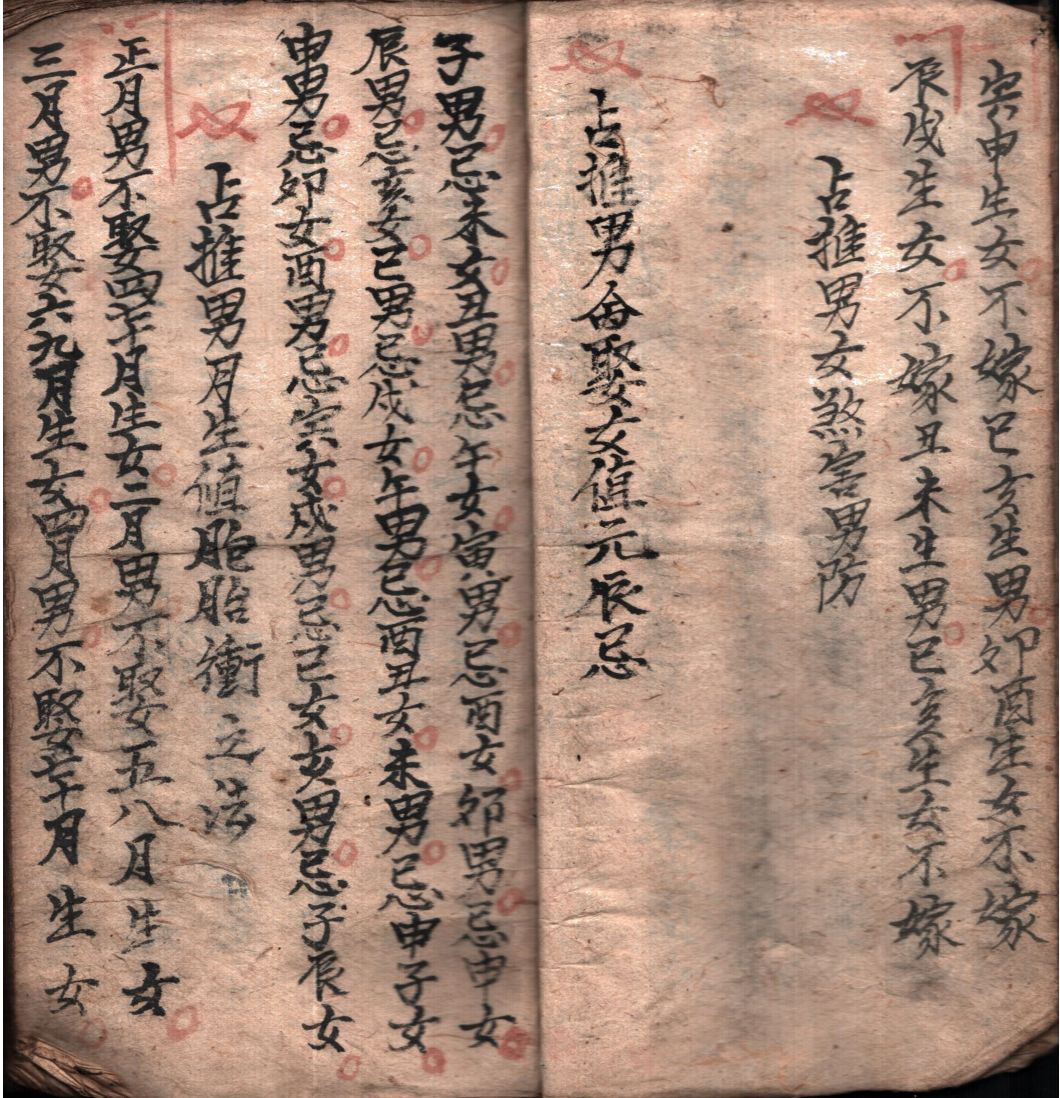 寅申生女不嫁巳亥生男卯酉生女不嫁
辰戌生女不嫁丑未生男巳亥生女不嫁
占推男女煞害男防
占推男命娶女值元辰忌
子男忌未女丑男忌午女寅男忌酉女卯男忌申女
辰男忌亥女巳男忌戌女午男忌酉丑女未男忌申子女
申男忌卯女酉男忌寅女戌男忌巳女亥男忌子辰女
占推男月生值胞胎衝之法
正月男不娶四七月生女二月男不娶五八月生女
三月男不娶六九月生女四月男不娶七十月生女